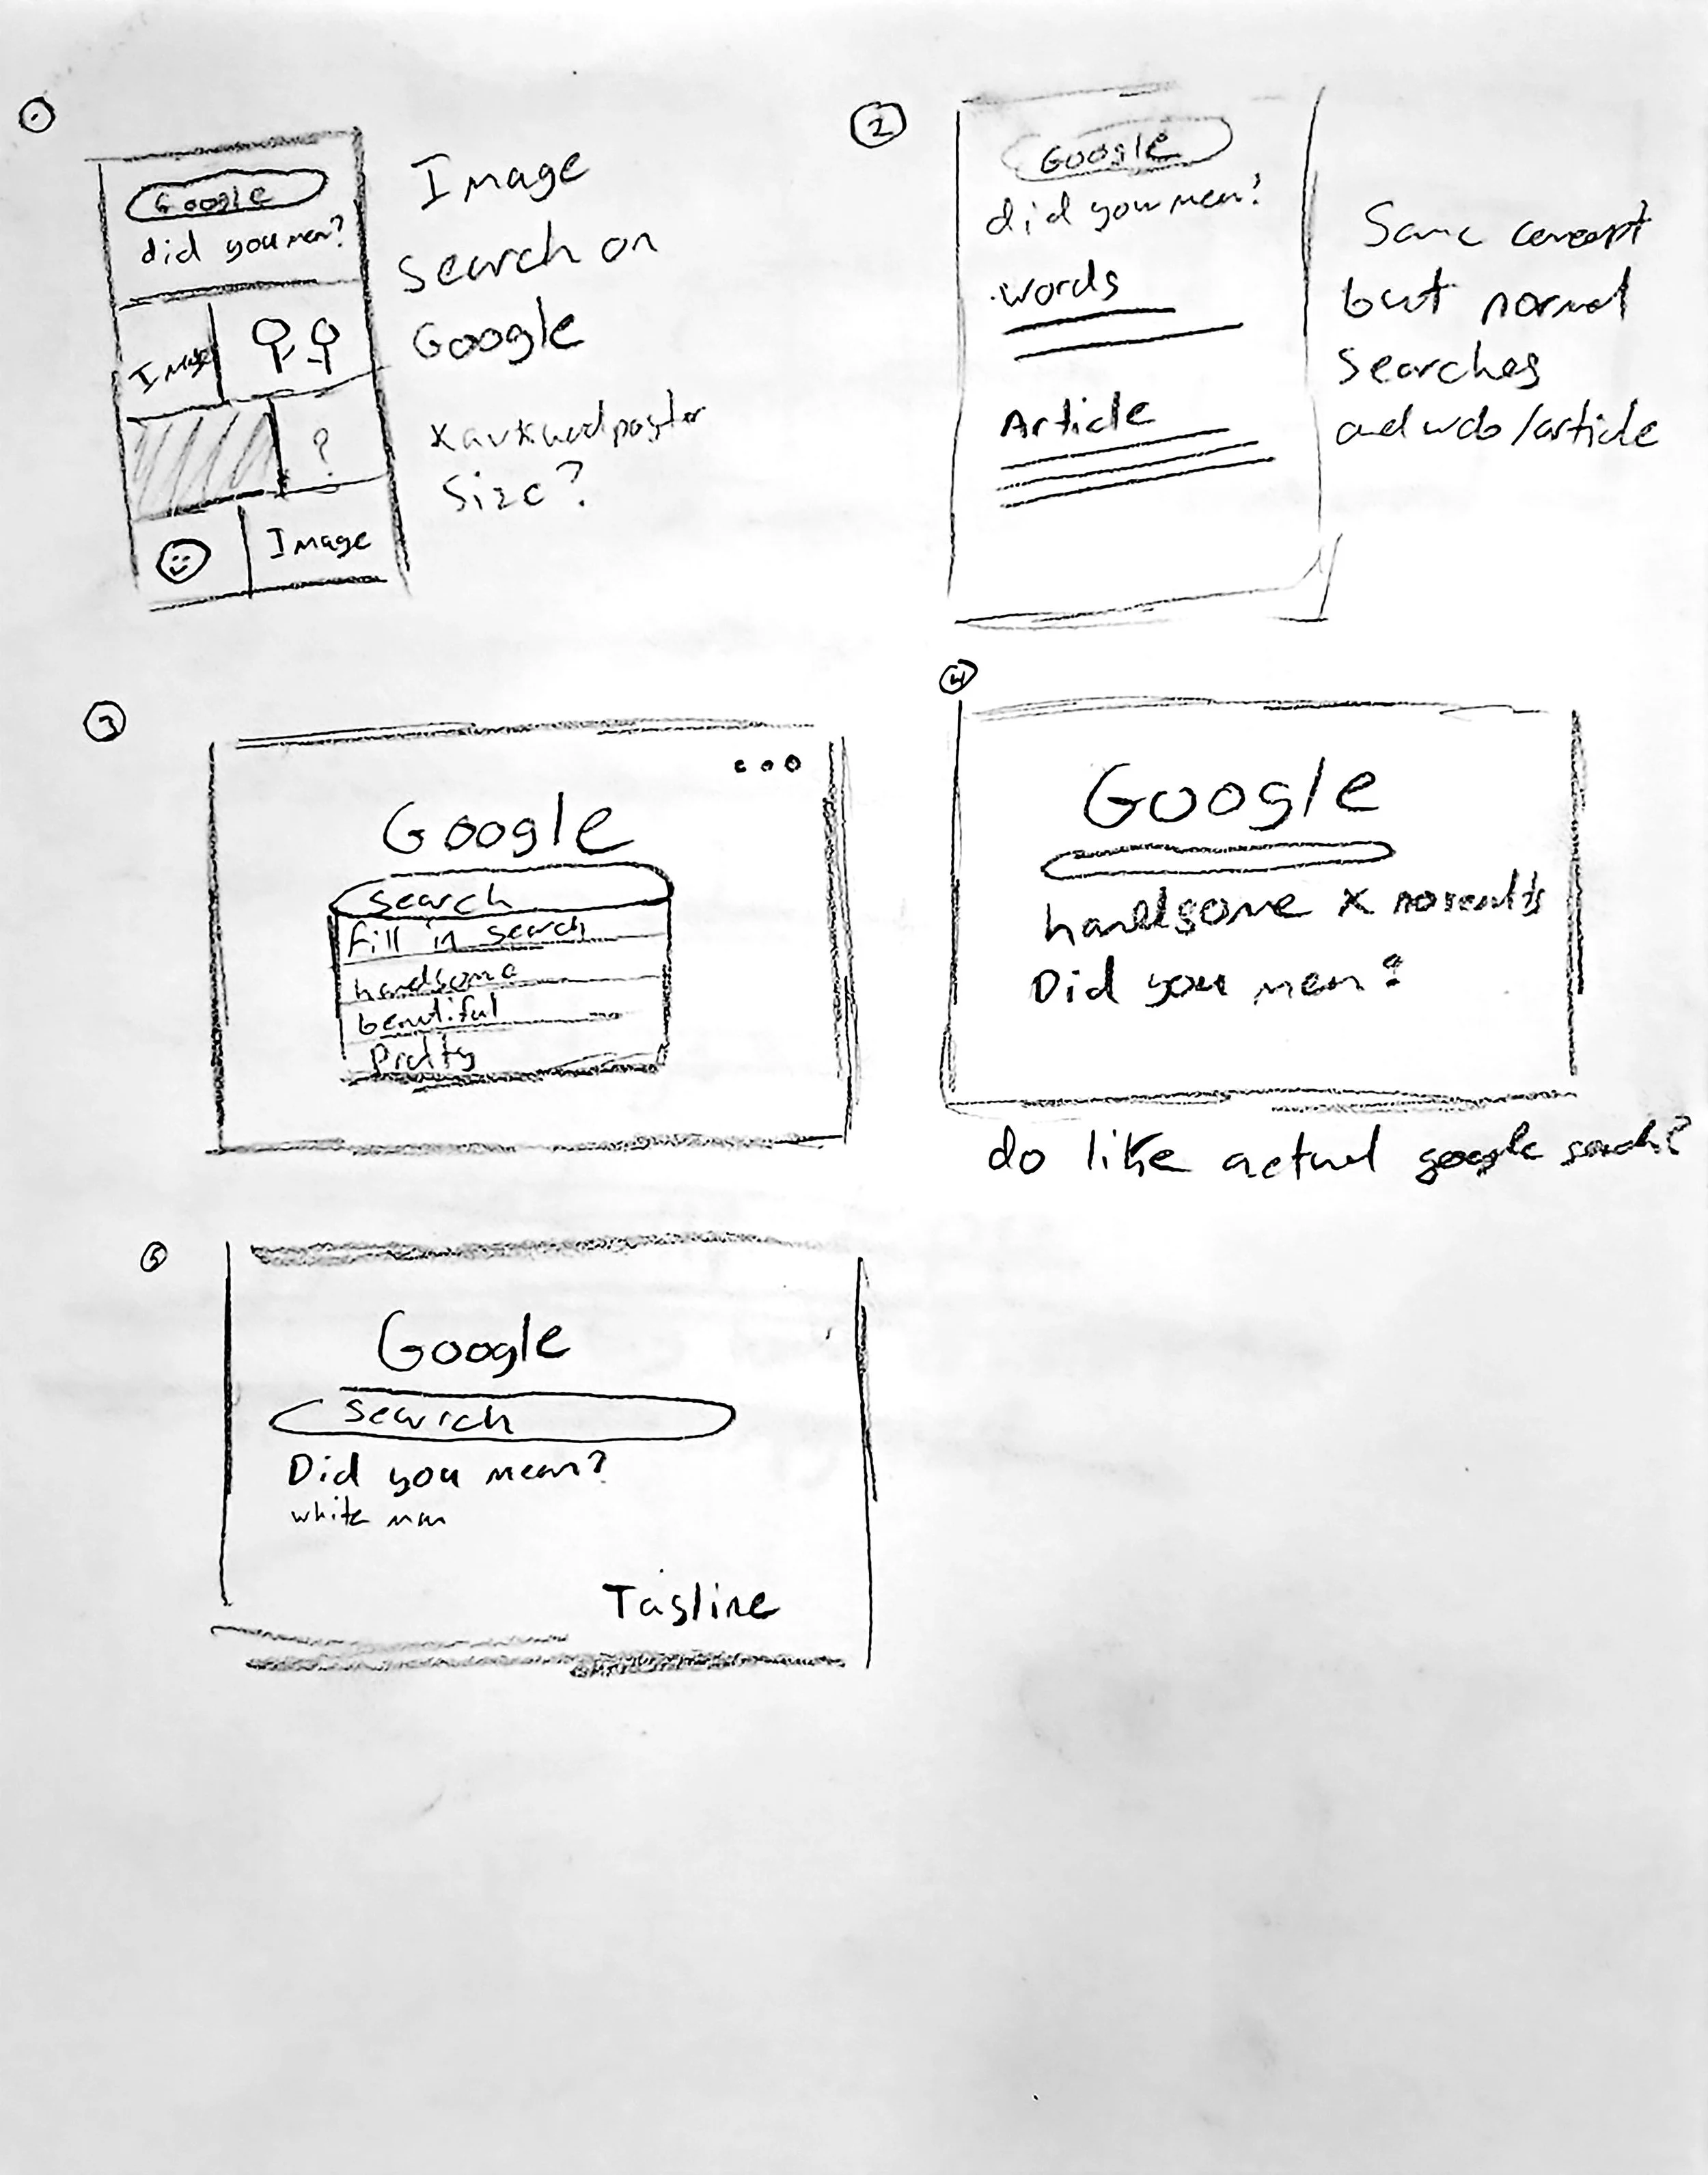 1
Google
did you mean?
Image
?
Image
Image
search on
Google
x awkward poster
size?
2
Google
did you mean?
words
Article
Same concept
but normal
searches
and web/article
3
Google
search
fill in search
handsome
beautiful
Pretty
4
Google
handsome x no results
Did you mean?
do like actual google search?
5
Google
search
Did you mean?
white man
Tagline